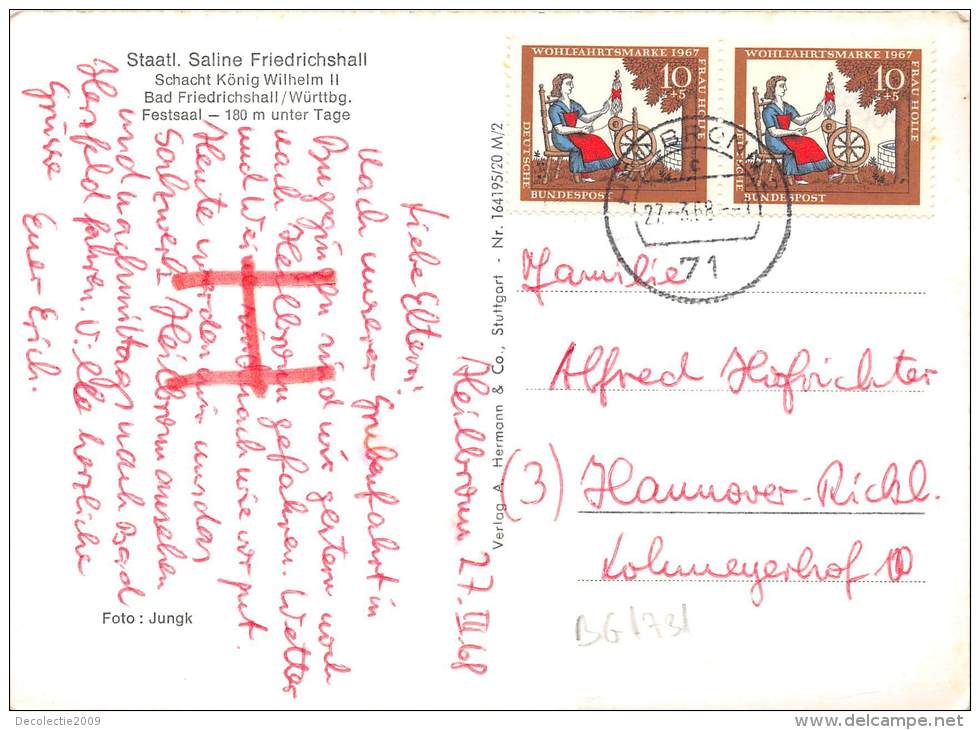 Staatl. Saline Friedrichshall
Schacht König Wilhelm II
Bad Friedrichshall/Württbg.
Festsaal – 180 m unter Tage
Heilbronn 27. III 68
Liebe Eltern!
Nach unserer Grubenfahrt in
sind wir gestern noch
nach Heilbronn gefahren. Wetter
und Wein sind nach wie vor gut.
Heute werden wir uns das
Salzwerk Heilbronn ansehen
und nachmittags nach Bad
Hersfeld fahren. Viele herzliche
Grüsse
Euer Erich.
Foto: Jungk
Verlag A. Hermann & Co., Stuttgart - Nr. 164195/20 M/2
WOHLFAHRTSMARKE 1967
FRAU HOLLE
10
+5
DEUTSCHE
BUNDESPOST
WOHLFAHRTSMARKE 1967
FRAU HOLLE
10
+5
DEUTSCHE
BUNDESPOST
c
71
Familie
Alfred Hofrichter
(3) Hannover-Rickl.
Kolmeyerhof
BG/731
Decolectie2009
http://www.delcampe.net